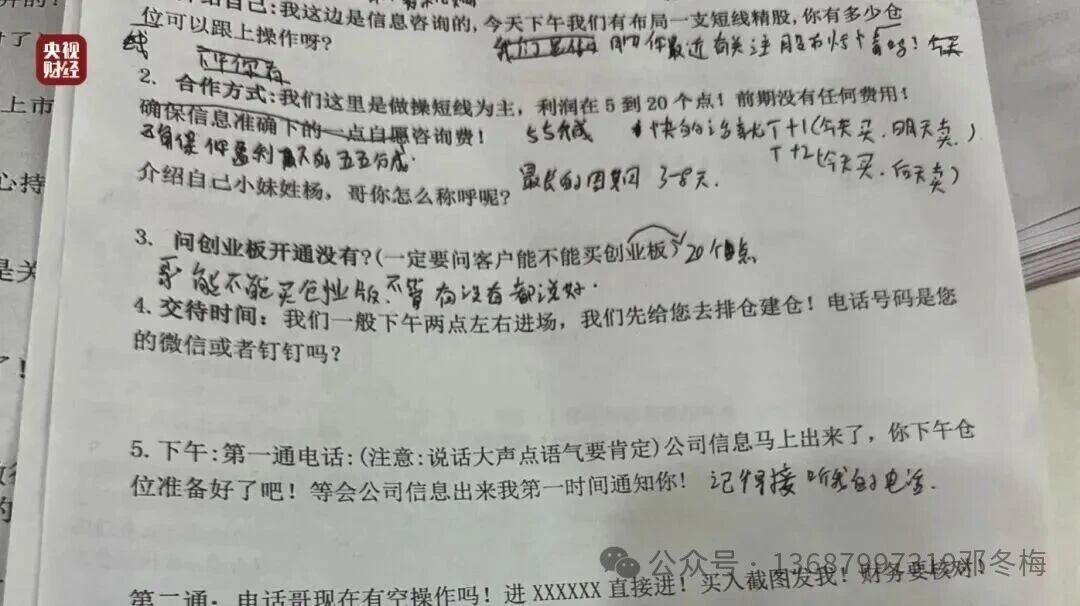 央视
财经
介绍自己:我这边是信息咨询的,今天下午我们有布局一支短线精股,你有多少仓
位可以跟上操作呀?
2. 合作方式:我们这里是做操短线为主,利润在5到20个点!前期没有任何费用!
确保信息准确下的一点自愿咨询费! 55分成 快的话就T+1(今天买.明天卖.)
T+2(今天买.后天卖)
介绍自己小妹姓杨,哥你怎么称呼呢? 最长的周期 3-8天.
3. 问创业板开通没有?(一定要问客户能不能买创业板) 20个点
能不能买创业板,不管有没有都说好.
4. 交待时间:我们一般下午两点左右进场,我们先给您去排仓建仓!电话号码是您
的微信或者钉钉吗?
5. 下午:第一通电话:(注意:说话大声点语气要肯定)公司信息马上出来了,你下午仓
位准备好了吧!等会公司信息出来我第一时间通知你! 记得接听我的电话.
第二通:电话哥现在有空操作吗!进XXXXXX直接进!买入截图发我!财务要核对!
公众号·13687997319邓冬梅
上市
心持
是关
的